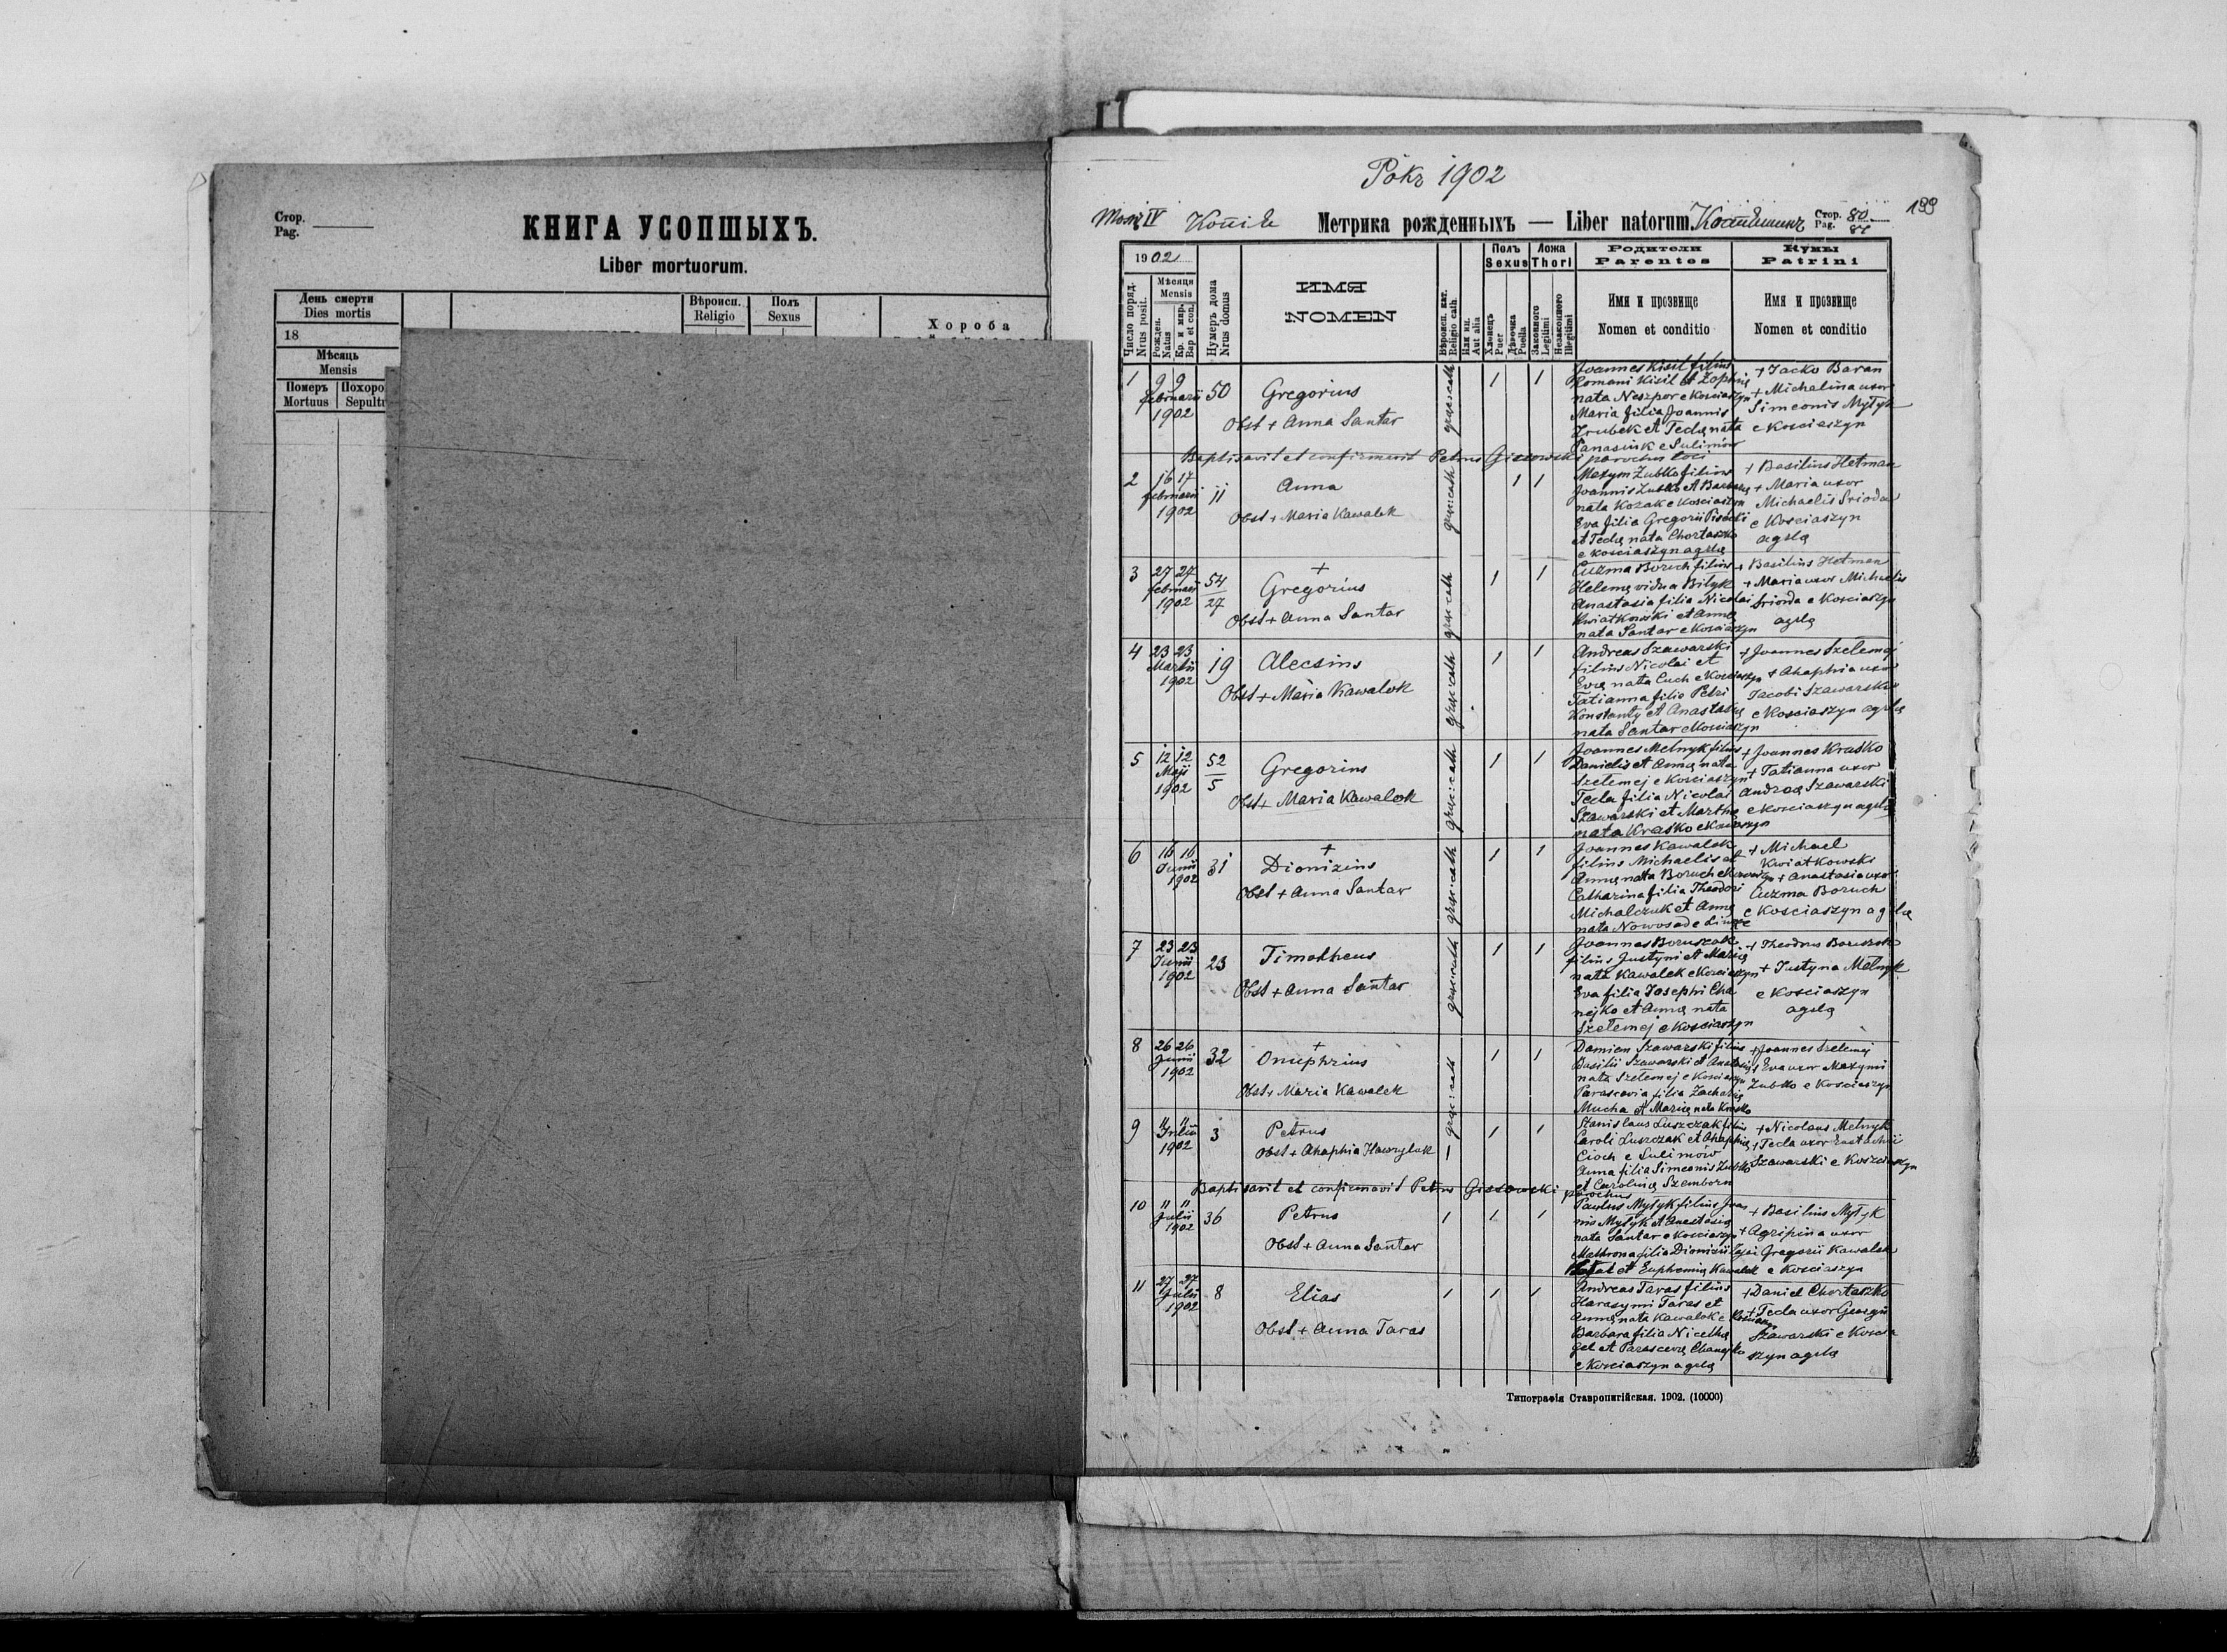 Стор.
Pag.
КНИГА УСОПШЫХЪ.
Liber mortuorum.
День смерти
Dies mortis
18
Мѣсяць
Mensis
Померъ
Mortuus
Вѣроисп.
Religio
Полъ
Sexus
Хороба
Рôкъ 1902
199
Томъ IV
Метрика рожденныхъ — Liber natorum.
Стор. 80
Pag. 81
1902
Число поряд.
Nrus posit.
Мѣсяця
Mensis
Рожден.
Natus
Кр. и мир.
Bap et con.
Нумеръ дома
Nrus domus
ИМЯ
NOMEN
Вѣроисп. кат.
Religio cath.
Или ин.
Aut alia
Полъ
Sexus
Хлопець
Puer
Дѣвочка
Puella
Ложа
Thori
Законного
Legitimi
Незаконного
Illegitimi
Родители
Parentes
Имя и прозвище
Nomen et conditio
Кумы
Patrini
Имя и прозвище
Nomen et conditio
1
9 9
februarii
1902
50
Gregorius
Obst + Anna Santar
1 1
Joannes Kisil filius
Romani Kisil et Zophię
nata Neszpor e Kosciaszyn
Maria filia Joannis
Zrubek et Teclę nata
Panasiuk e Sulimow
+ Jacko Baran
+ Michalina uxor
Simeonis Mytyk
e Kosciaszyn
Baptisavit et confirmavit Petrus Gissowski parochus loci
2
16 17
februarii
1902
11
Anna
Obst + Maria Kawalek
1 1
Maxym Zubko filius
Joannis Zubko et Barbarę
nata Kozak e Kosciaszyn
Eva filia Gregorii
et Teclę nata Chortaszko
e Kosciaszyn agrlę
+ Basilius Hetman
+ Maria uxor
Michaelis Srioda
e Kosciaszyn
agrlę
3
27 27
februarii
1902
54
27
+
Gregorius
Obst + Anna Santar
1 1
Cuzma Boruch filius
Helenę vidua Bilyk
Anastasia filia Nicolai
Kwiatkowski et Annę
nata Santar e Kosciaszyn
+ Basilius Hetman
+ Maria uxor Michaelis
Srioda e Kosciaszyn
agrlę
4
23 23
Martii
1902
19
Alecsius
Obst + Maria Kawalok
1 1
Andreas Szawarski
filius Nicolai et
Evę nata Cuch e Kosciaszyn
Tatianna filia Petri
Konstanty et Anastasię
nata Santar e Kosciaszyn
+ Joannes Szelemej
+ Ahaphia uxor
Jacobi Szawarski
e Kosciaszyn agrlę
5
12 12
Maji
1902
52
5
Gregorius
Obst + Maria Kawalok
1 1
Joannes Melnyk filius
Danielis et Annę nata
Szelemej e Kosciaszyn
Tecla filia Nicolai
Szawarski et Marthę
nata Krasko e Kosciaszyn
+ Joannes Krasko
+ Tatianna uxor
Andreę Szawarski
e Kosciaszyn agrlę
6
16 16
Junii
1902
31
+
Dionizius
Obst + Anna Santar
1 1
Joannes Kawalok
filius Michaelis et
Annę nata Boruch e Kosciaszyn
Catharina filia Theodori
Michalczuk et Annę
nata Nowosad e
+ Michael
Kwiatkowski
+ Anastasia uxor
Cuzma Boruch
e Kosciaszyn agrlę
7
23 23
Junii
1902
23
Timotheus
Obst + Anna Santar
1 1
Joannes Boruszok
filius Justyni et Marię
nata Kawalek e Kosciaszyn
Eva filia Josephi Cha
nejko et Annę nata
Szelemej e Kosciaszyn
+ Theodrus Boruszok
+ Justyna Melnyk
e Kosciaszyn
agrlę
8
26 26
Junii
1902
32
+
Onuphrius
Obst + Maria Kawalek
1 1
Damien Szawarski filius
Basilii Szawarski et Anastasię
nata Szelemej e Kosciaszyn
Parascevia filia Zacharię
Mucha et Marię nata Krasko
+ Joannes Szelemej
+ Eva uxor Maxymi
Zubko e Kosciaszyn
9
11 11
Julii
1902
3
Petrus
Obst + Ahaphia Hawryluk
1 1
Stanislaus Luszczak filius
Caroli Luszczak et Ahaphię
Cioch e Sulimow
Anna filia Simeonis Zubko
et Carolinę Szemborn
+ Nicolaus Melnyk
+ Tecla uxor Eustachii
Szawarski e Kosciaszyn
Baptisavit et confirmavit Petrus Gissowski parochus
10
11 11
Julii
1902
36
Petrus
Obst + Anna Santar
1 1 1
Paulus Mytyk filius Joan
nis Mytyk et Anastasię
nata Santar e Kosciaszyn
Mathrona filia Dionizii
et Euphemię Kawalek
+ Basilius Mytyk
+ Agripina uxor
Gregorii Kawalek
e Kosciaszyn
11
27 27
Julii
1902
8
Elias
Obst + Anna Taras
1 1 1
Andreas Taras filius
Harasymi Taras et
Annę nata Kawalok e Kosciaszyn
Barbara filia Nicethę
Gel et Parascevę Chanejko
e Kosciaszyn agrlę
+ Daniel Chortaszko
+ Tecla uxor Georgii
Szawarski e Koscia
szyn agrlę
Типографія Ставропигійская. 1902. (10000)